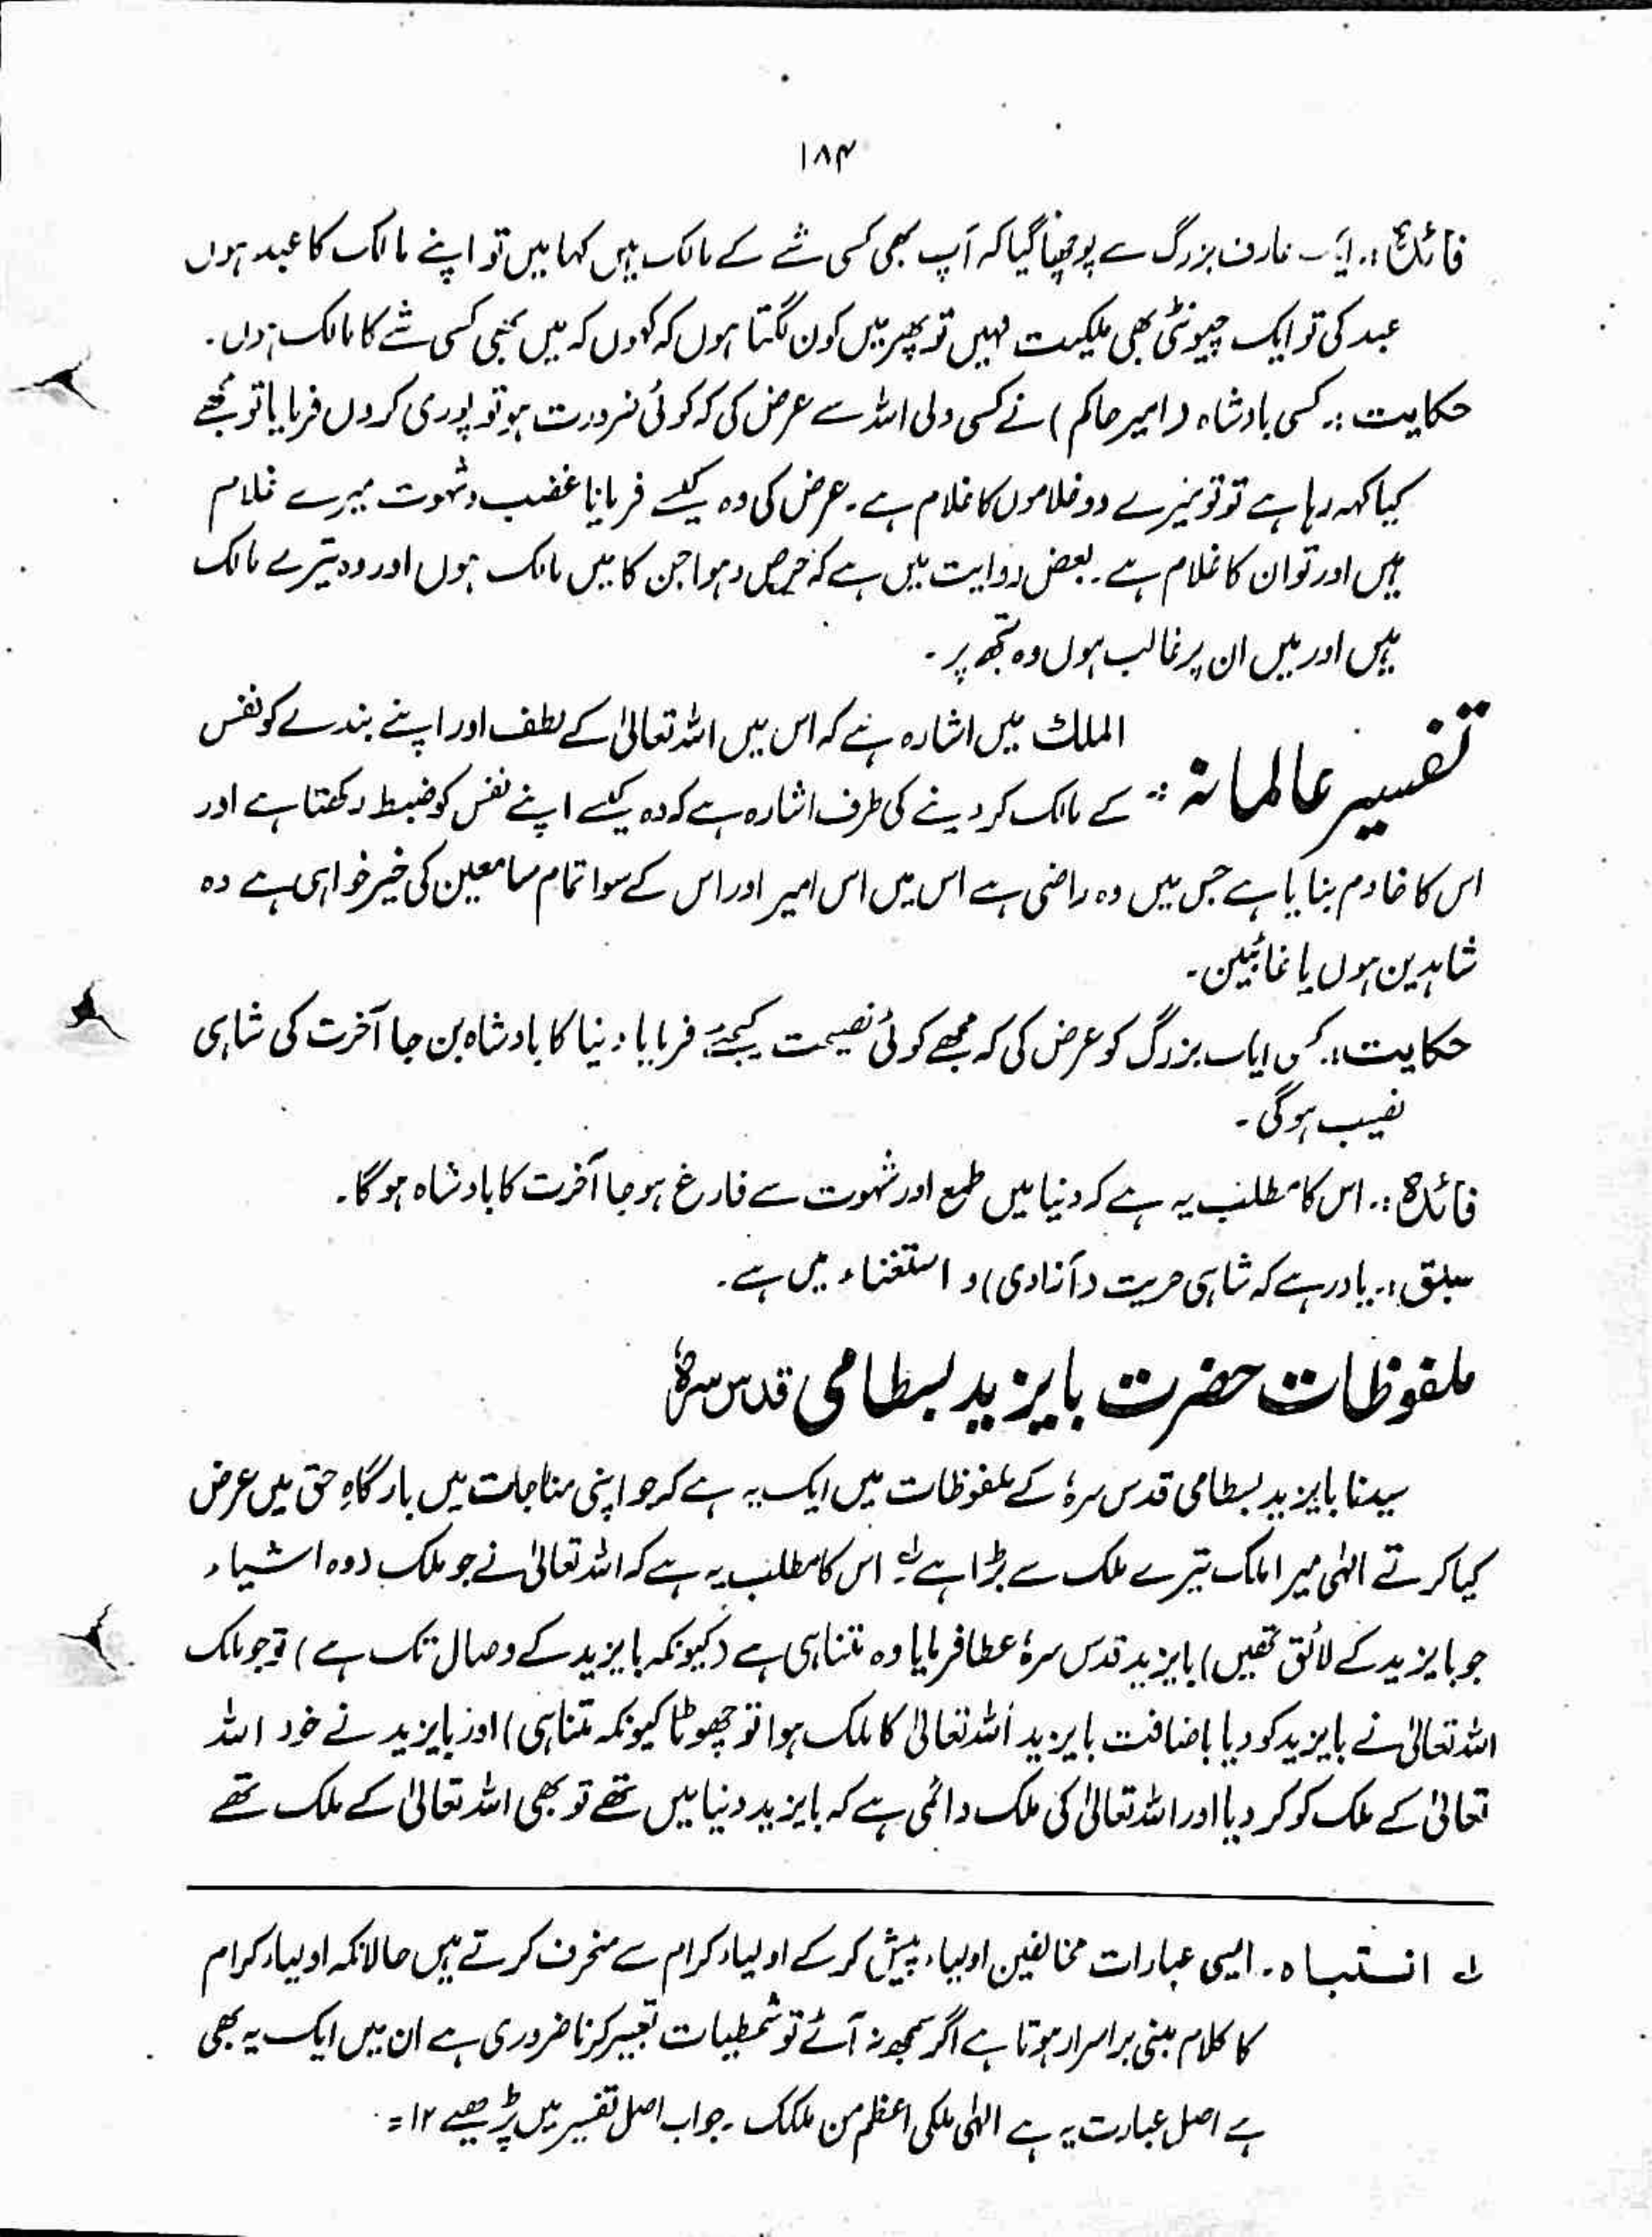 ۱۸۴
فائدہ :۔ ایک عارف بزرگ سے پوچھا گیا کہ آپ بھی کسی شے کے مالک ہیں کہا میں تو اپنے مالک کا عبد ہوں
عبد کی تو ایک چیونٹی بھی ملکیت نہیں تو پھر میں کون لگتا ہوں کہ کہوں کہ میں بھی کسی شے کا مالک ہوں۔
حکایت :۔ کسی بادشاہ (امیر حاکم) نے کسی ولی اللہ سے عرض کی کہ کوئی ضرورت ہو تو پوری کر دوں فرمایا تو مجھے
کیا کہہ رہا ہے تو تو میرے دو غلاموں کا غلام ہے۔ عرض کی وہ کیسے فرمایا غضب و شہوت میرے غلام
ہیں اور تو ان کا غلام ہے۔ بعض روایت میں ہے کہ حرص و ہوا جن کا میں مالک ہوں اور وہ تیرے مالک
ہیں اور میں ان پر غالب ہوں وہ تجھ پر۔
تفسیر عالمانہ :۔ الملک میں اشارہ ہے کہ اس میں اللہ تعالیٰ کے لطف اور اپنے بندے کو نفس
کے مالک کر دینے کی طرف اشارہ ہے کہ وہ کیسے اپنے نفس کو ضبط رکھتا ہے اور
اس کا خادم بنایا ہے جس میں وہ راضی ہے اس میں اس امیر اور اس کے سوا تمام سامعین کی خیر خواہی ہے وہ
شاہدین ہوں یا غائبین۔
حکایت :۔ کسی ایک بزرگ کو عرض کی کہ مجھے کوئی نصیحت کیجئے فرمایا دنیا کا بادشاہ بن جا آخرت کی شاہی
نصیب ہوگی۔
فائدہ :۔ اس کا مطلب یہ ہے کہ دنیا میں طمع اور شہوت سے فارغ ہو جا آخرت کا بادشاہ ہو گا۔
سبق :۔ یاد رہے کہ شاہی حریت (آزادی) و استغناء میں ہے۔
ملفوظات حضرت بایزید بسطامی قدس سرہٗ
سیدنا بایزید بسطامی قدس سرہٗ کے ملفوظات میں ایک یہ ہے کہ جو اپنی مناجات میں بارگاہِ حق میں عرض
کیا کرتے الٰہی میرا ملک تیرے ملک سے بڑا ہے لہ اس کا مطلب یہ ہے کہ اللہ تعالیٰ نے جو ملک (وہ اشیاء
جو بایزید کے لائق تھیں) بایزید قدس سرہٗ عطا فرمایا وہ متناہی ہے (کیونکہ بایزید کے وصال تک ہے) تو جو ملک
اللہ تعالیٰ نے بایزید کو دیا باضافت بایزید اللہ تعالیٰ کا ملک ہوا تو چھوٹا کیونکہ متناہی) اور بایزید نے خود اللہ
تعالیٰ کے ملک کو کر دیا اور اللہ تعالیٰ کی ملک دائمی ہے کہ بایزید دنیا میں تھے تو بھی اللہ تعالیٰ کے ملک تھے
لہ انتباہ۔ ایسی عبارات مخالفین اولیاء پیش کر کے اولیاء کرام سے منحرف کرتے ہیں حالانکہ اولیاء کرام
کا کلام مبنی بر اسرار ہوتا ہے اگر سمجھ نہ آئے تو شطحیات تعبیر کرنا ضروری ہے ان میں ایک یہ بھی
ہے اصل عبارت یہ ہے الٰہی ملکی اعظم من ملکک۔ جواب اصل تفسیر میں پڑھیے ۱۲=